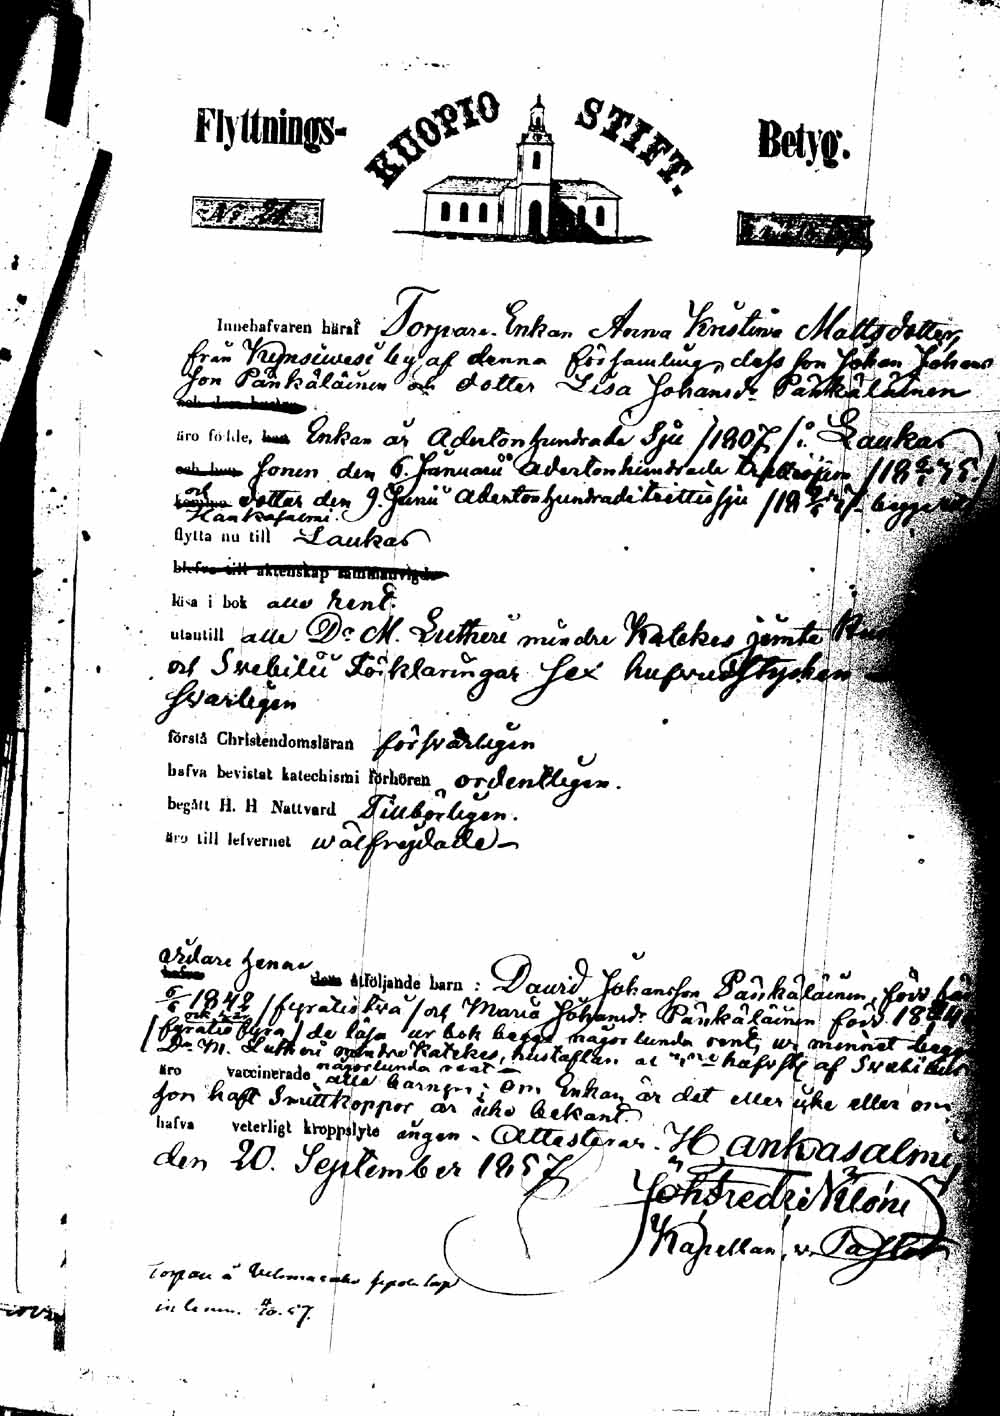 Flyttnings- KUOPIO STIFT. Betyg.
No 21
Innehafvaren häraf Torpare Enkan Anna Kristina Mattsdotter,
från Kynsiwesi by af denna församling, dess son Johan Johans
son Pänkäläinen och dotter Lisa Johansdr Pänkäläinen
äro födde, Enkan år Adertonhundrade Sju /1807/ i Laukas
sonen den 6. Januarii Adertonhundrade
och dotter den 9. Junii Adertonhundradetrettiosju
Hankasalmi.
flytta nu till Laukas
blefvo till äktenskap sammanvigde
läsa i bok alla rent.
utantill alla Dr M. Lutheri mindre Katekes jemte
och Svebilii Förklaringar sex hufvudstycken
svarligen
förstå Christendomsläran försvarligen
hafva bevistat katechismi förhören ordentligen.
begått H. H Nattvard Tillbörligen.
äro till lefvernet wälfrejdade
vidare henne
åtföljande barn : David Johansson Pänkäläinen, född
1842 /fyratiotvå/ och Maria Johansdr Pänkäläinen född
/fyratiofyra/ de läsa ur bok begge någorlunda rent, ur minnet begge
Dr M. Lutheri mindre Katekes, hustaflan af Svebilii
någorlunda rent
äro vaccinerade alla barnen; om Enkan är det eller icke eller om
hon haft Smittkoppor är icke bekant.
hafva veterligt kroppslyte ingen. Attesterar. Hankasalmi
den 20. September 1857
Kapellan, v. Pastor
in 57.